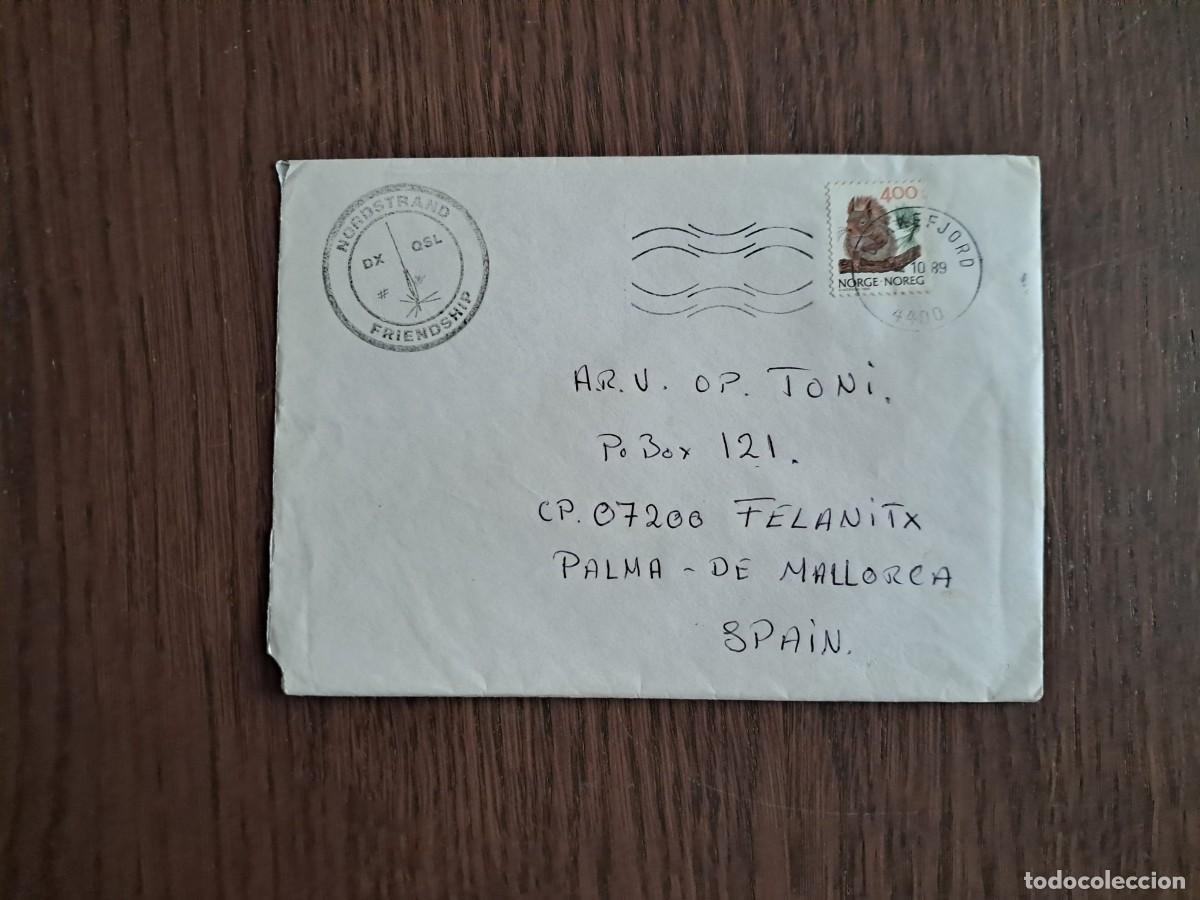 NORDSTRAND
DX QSL
#
FRIENDSHIP
400
EFJORD
10 89
NORGE · NOREG
4400
A.R.V. OP. TONi.
Po Box 121.
CP. 07200 FELANiTX
PALMA - DE MALLORCA
SPAiN.
todocoleccion